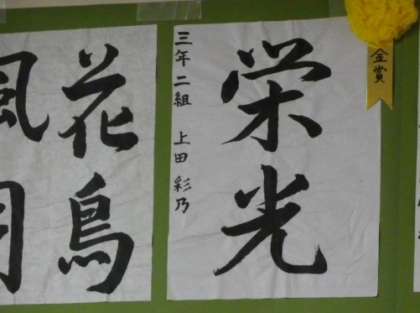 金賞
栄光
三年二組 上田 彩乃
花鳥
風月